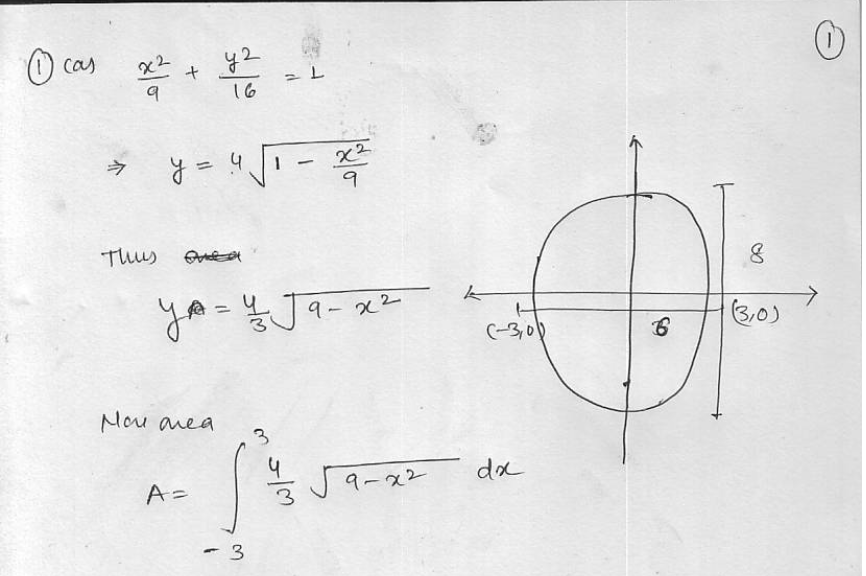 ①
① (a) x²/9 + y²/16 = 1
⇒ y = 4√(1 - x²/9)
Thus
y = 4/3 √(9 - x²)
8
(-3,0) 6 (3,0)
Now area
A = ∫_{-3}^{3} 4/3 √(9-x²) dx